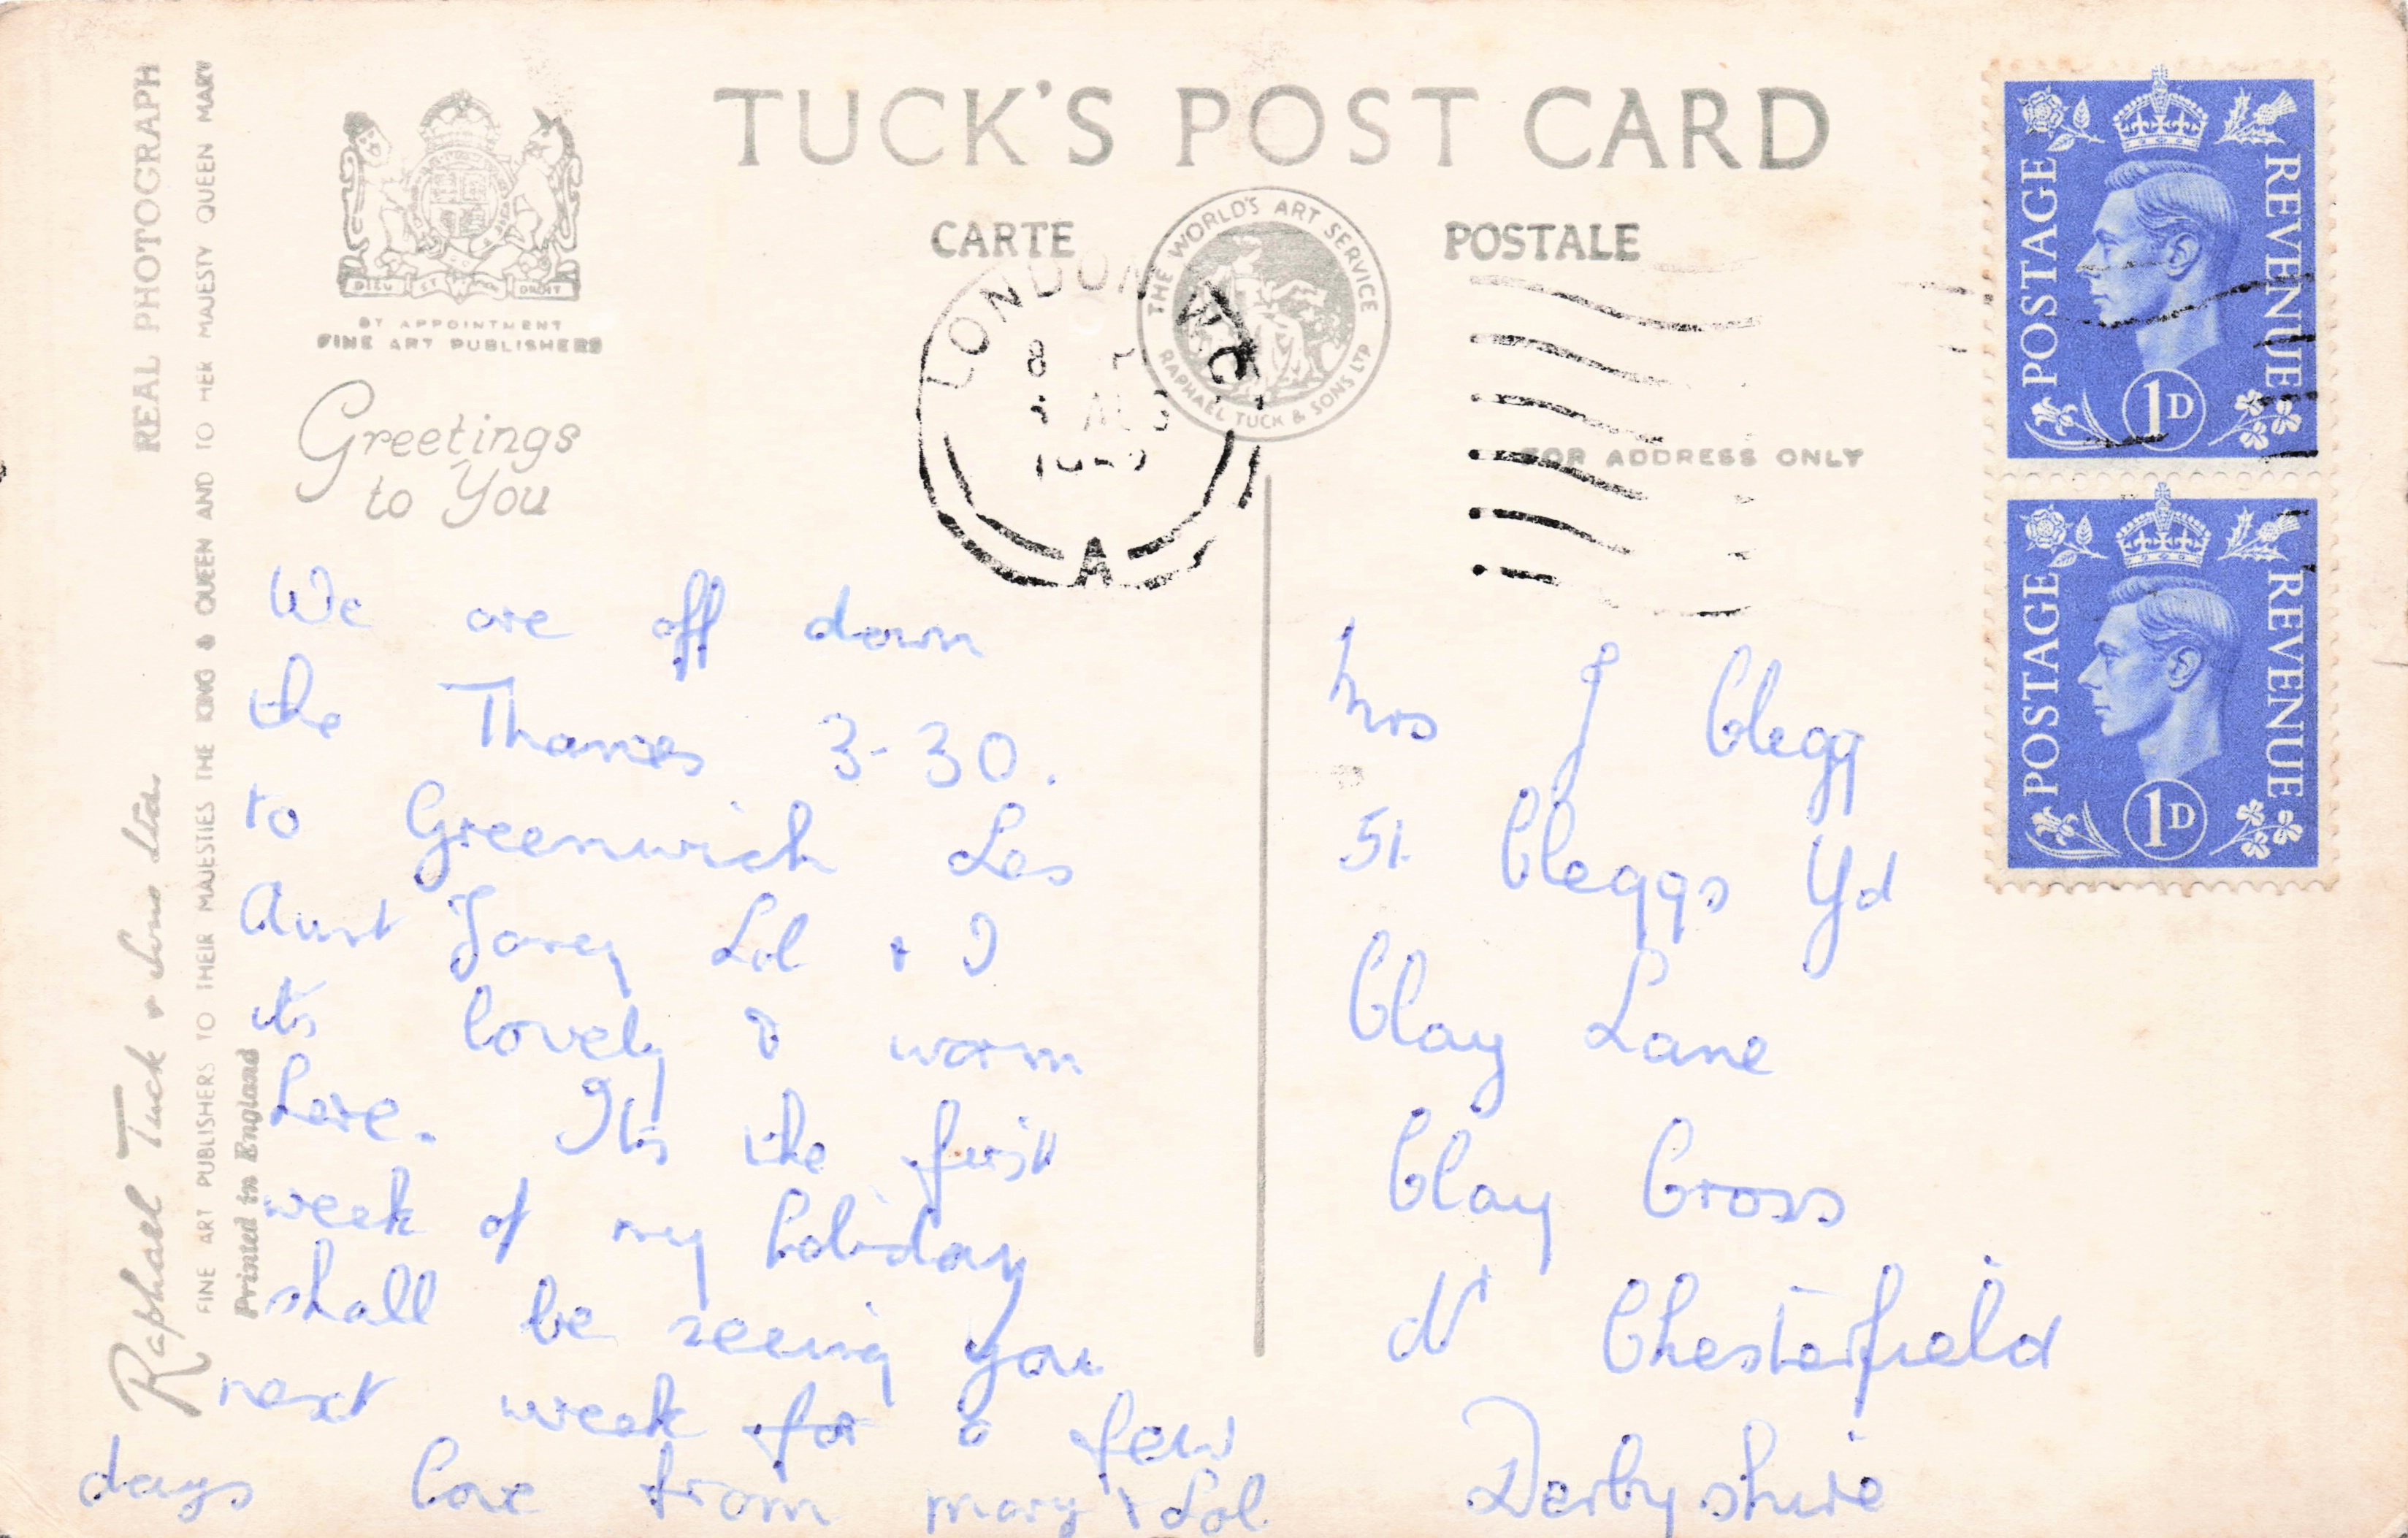 TUCK'S POST CARD
CARTE POSTALE
THE WORLD'S ART SERVICE
RAPHAEL TUCK & SONS LTD
FOR ADDRESS ONLY
DIEU ET MON DROIT
BY APPOINTMENT
FINE ART PUBLISHERS
Greetings
to You
REAL PHOTOGRAPH
Raphael Tuck & Sons Ltd.
FINE ART PUBLISHERS TO THEIR MAJESTIES THE KING & QUEEN AND TO HER MAJESTY QUEEN MARY
Printed in England
LONDON W.C.
8
A
POSTAGE REVENUE
1D
POSTAGE REVENUE
1D
We are off down
the Thames 3-30.
to Greenwich Les
Aunt Lol & I
its lovely & warm
here. Its the first
week of my holiday
shall be seeing you
next week for a few
days love from Mary & Lol.
Mrs J Clegg
51. Cleggs Yd
Clay Lane
Clay Cross
Nr Chesterfield
Derbyshire